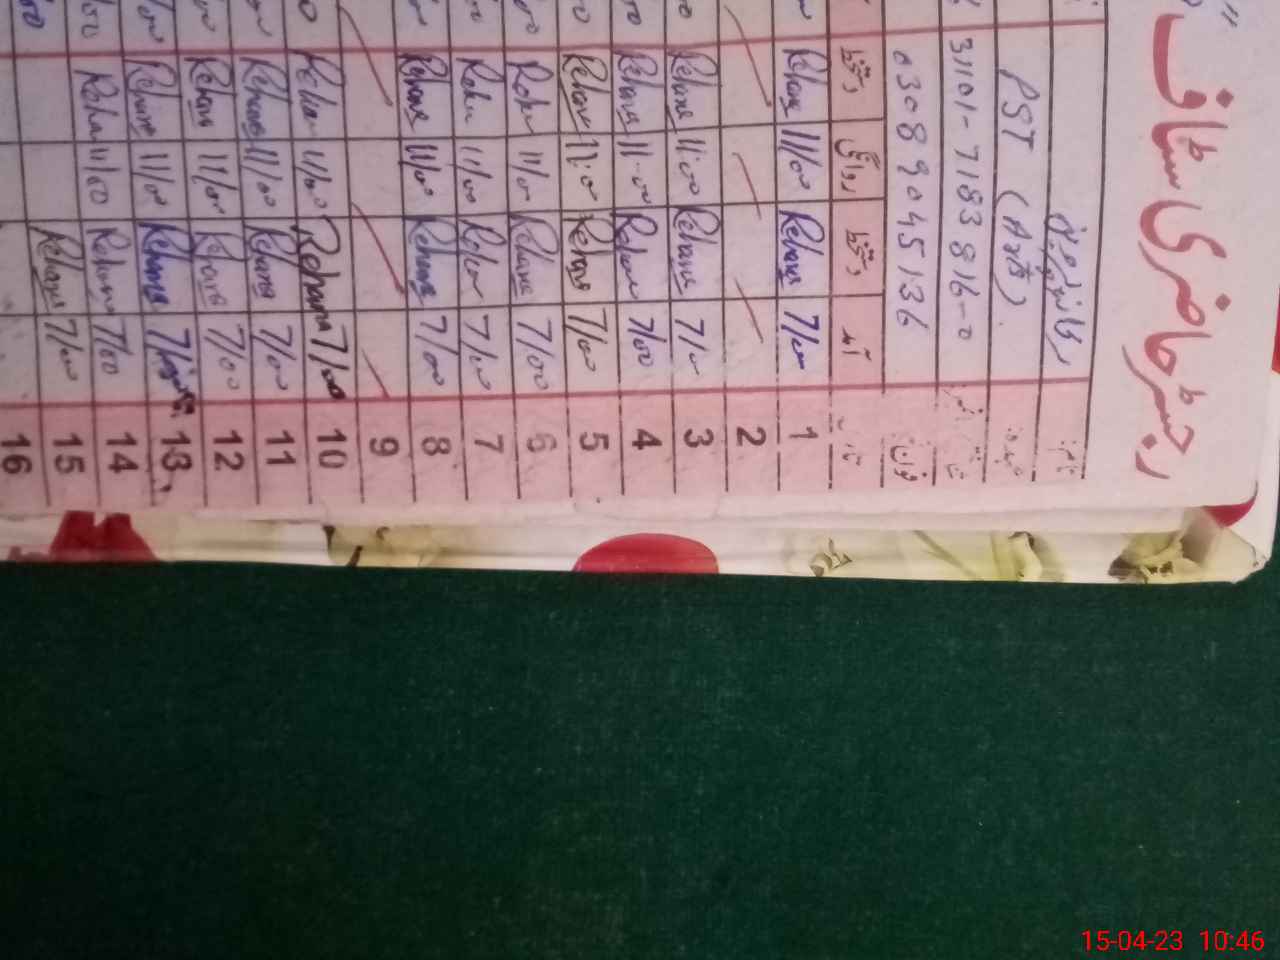 رجسٹر حاضری سٹاف
نام:
عہدہ: PST (Arts)
31101-7183816-0
فون: 03089045136
تاریخ آمد دستخط روانگی دستخط
1 7/00 Rehana 11/00 Rehana
2
3 7/00 Rehana 11:00 Rehana
4 7/00 Rehana 11:00 Rehana
5 7/00 Rehana 11:00 Rehana
6 7/00 Rehana 11/00
7 7/00 11/00
8 7/00 Rehana 11/00 Rehana
9
10 7/00 Rehana 11/00 Rehana
11 7/00 Rehana 11/00 Rehana
12 7/00 Rehana 11/00 Rehana
13 Rehana 11/00 Rehana
14 7/00 Rehana 11/00 Rehana
15 7/00 Rehana
16
15-04-23 10:46